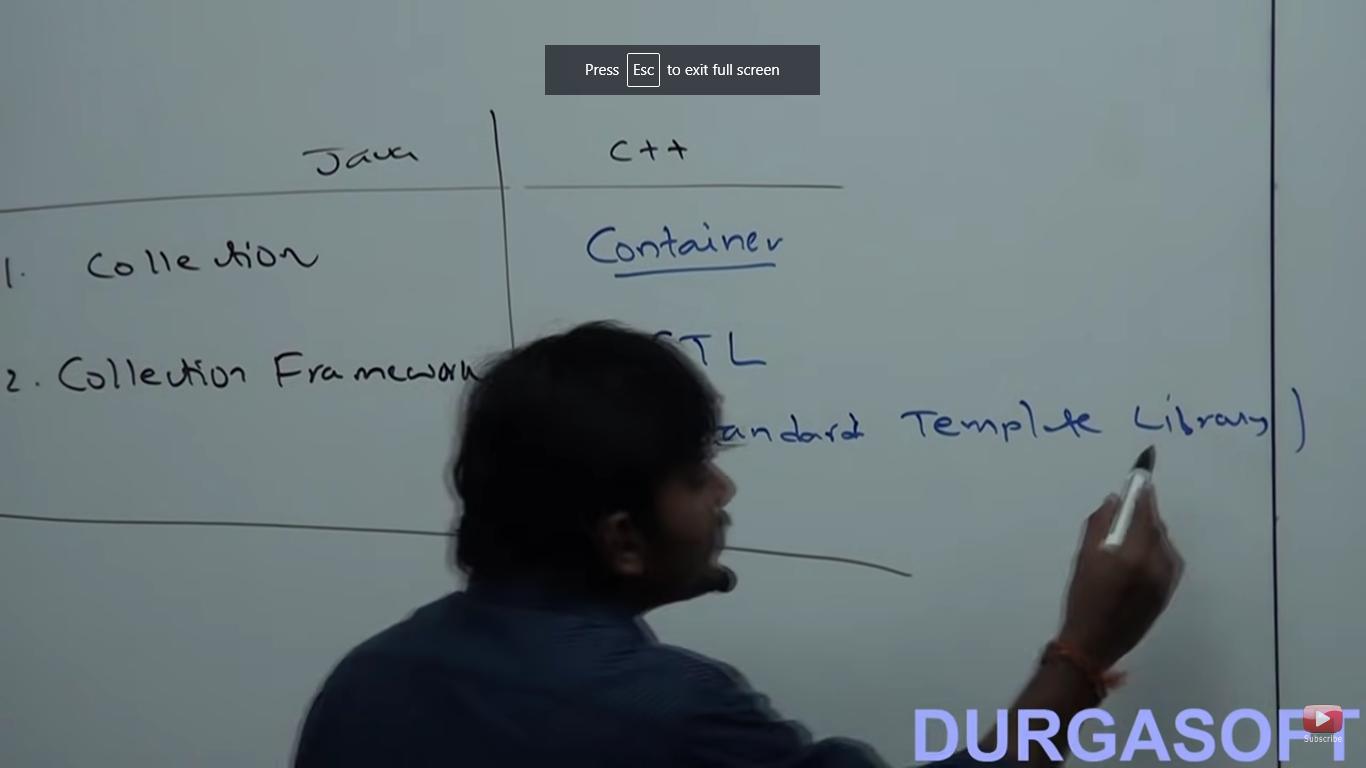 Press Esc to exit full screen
Java C++
1. Collection Container
2. Collection Framework STL
tandard Template Library)
DURGASOFT
Subscribe